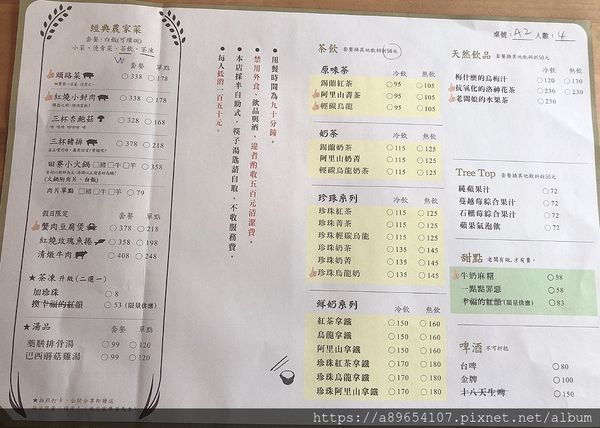 經典農家菜
套餐:白飯(可續碗)
小菜、燙青菜、茶飲、茶凍
套餐 單點
頭路菜 338 178
紅燒小封肉 338 178
三杯杏鮑菇 268
三杯豬排 268
田寮小火鍋 豬 牛 羊 358
(火鍋附肉片、白飯)
肉片單點 豬 牛 羊 79
假日限定 套餐 單點
蟹肉豆腐煲 378 218
紅燒玫瑰魚捲 358 198
清燉牛肉 408 248
★茶凍 升級(二選一)
加珍珠 8
換幸福的紅韻 53(限量供應)
★湯品 套餐 單點
藥膳排骨湯 99 120
巴西蘑菇雞湯 99 120
拍照打卡、公開分享即贈送
• 用餐時間為九十分鐘。
• 禁用外食、飲品與酒,違者酌收五百元清潔費。
• 本店採半自助式,筷子湯匙請自取,不收服務費。
• 每人低消一百五十元。
茶飲 套餐換其他飲料折50元
原味茶 冷飲 熱飲
錫蘭紅茶 95 105
阿里山菁茶 95 105
輕碳烏龍 95 105
奶茶 冷飲 熱飲
錫蘭奶茶 115 125
阿里山奶菁 115 125
輕碳烏龍奶茶 115 125
珍珠系列 冷飲 熱飲
珍珠紅茶 115 125
珍珠菁茶 115 125
珍珠輕碳烏龍 115 125
珍珠奶茶 135 145
珍珠奶菁 135 145
珍珠烏龍奶 135 145
鮮奶系列 冷飲 熱飲
紅茶拿鐵 150 160
烏龍拿鐵 150 160
阿里山拿鐵 150 160
珍珠紅茶拿鐵 170 180
珍珠烏龍拿鐵 170 180
珍珠阿里山拿鐵 170 180
桌號: A2 人數: 4
天然飲品 套餐換其他飲料折50元
冷飲 熱飲
梅什麼的烏梅汁 120 130
抗氧化的洛神花茶 230
老闆娘的水果茶 230
Tree Top 套餐換其他飲料折50元
純蘋果汁 72
蔓越莓綜合果汁 72
石榴莓綜合果汁 72
蘋果氣泡飲 72
甜點 老闆有做,才有賣。
牛奶麻糬 58
一點點罪惡 58
幸福的紅韻(限量供應) 83
啤酒 不可折抵
台啤 80
金牌 100
十八天生啤 150
https://a89654107.pixnet.net/album